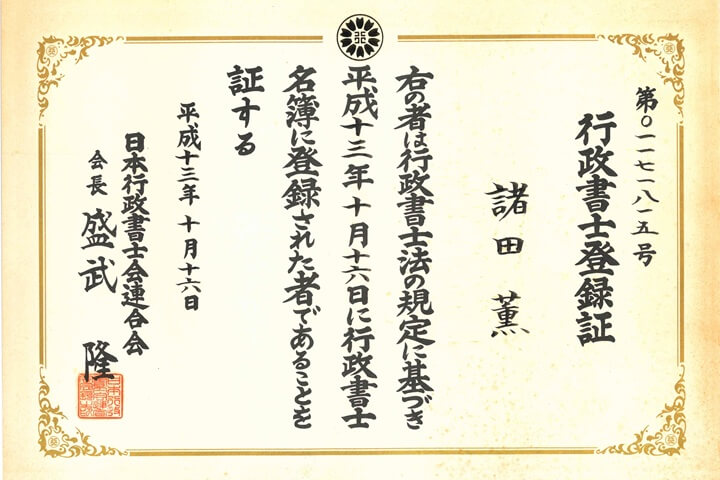 第〇一一七一八一五号
行政書士登録証
諸田 薫
右の者は行政書士法の規定に基づき
平成十三年十月十六日に行政書士
名簿に登録された者であることを
証する
平成十三年十月十六日
日本行政書士会連合会
会長 盛武 隆